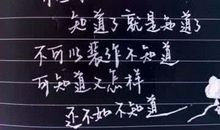 知道了就是知道了
不可以装作不知道
可知道又怎样
还不如不知道